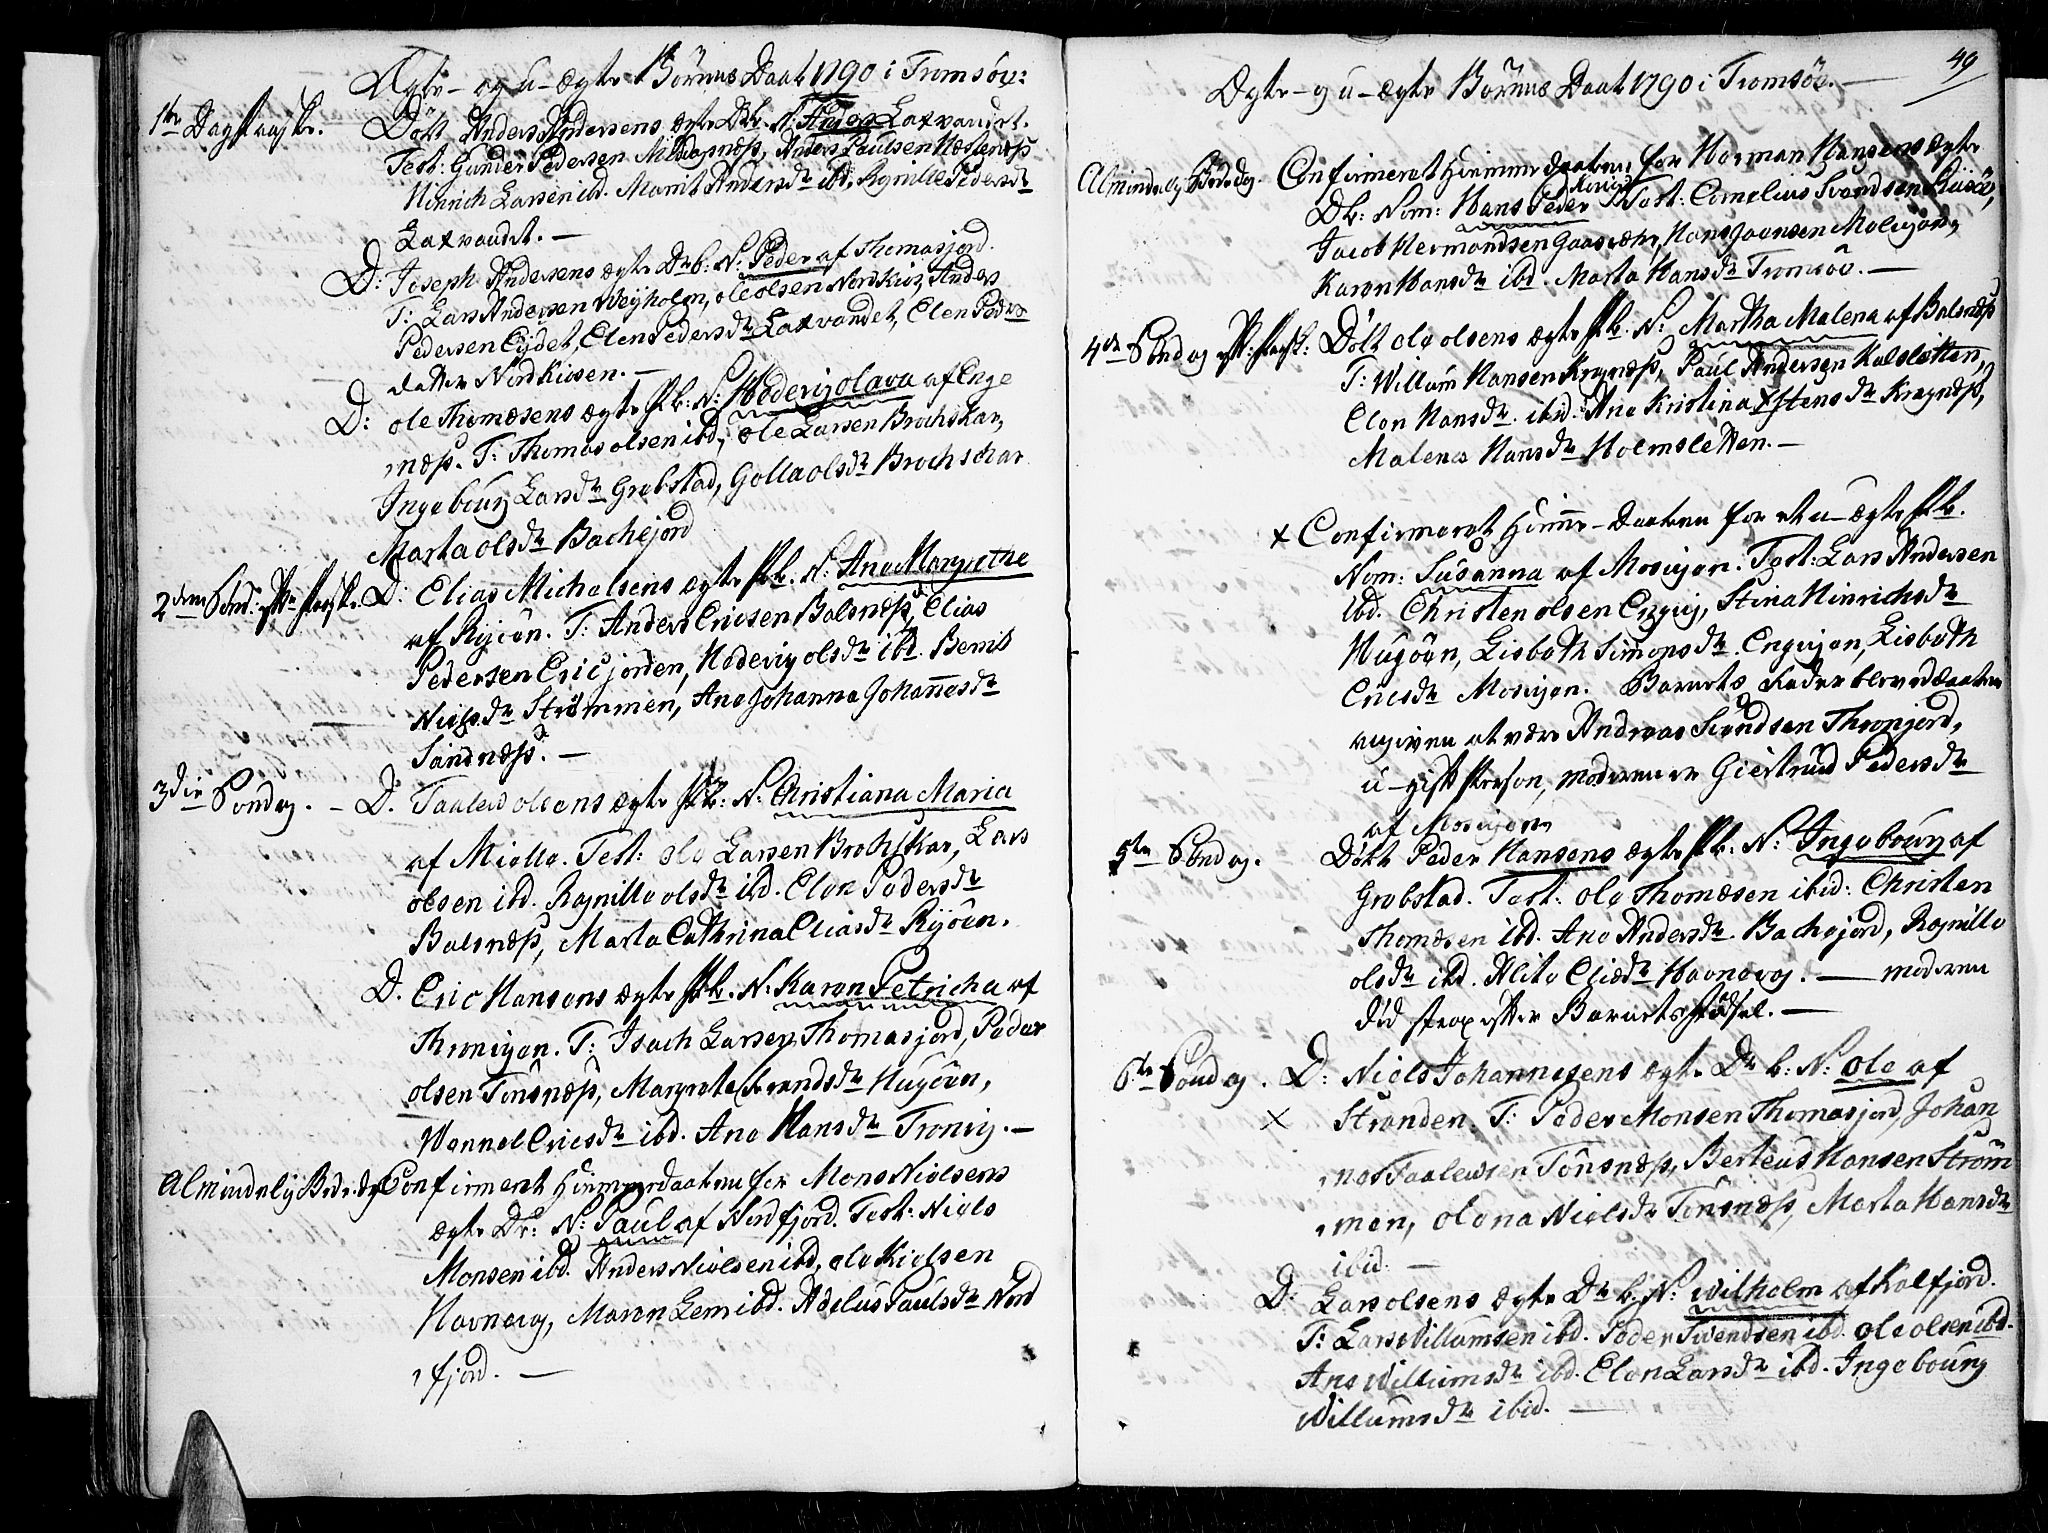 Ægte- og u-ægte Börnes Daab 1790 i Tromsöe:
1te Dag Paaske. Döbt Anders Andersens ægte Db. N. Laxvandet.
Test: Gunder Pedersen Anders Paulsen
Hinrich Larsen ibd. Marit Andersdr ibd. Ragnille Pedersdr
Laxvandet. —
D: Joseph Andersens ægte Drb: N: Peder af Thomasjord.
T: Lars Andersen ole olsen Nordkios, Anders
Pedersen Eydet, Elen Pedersdr Laxvandet, Elen Peders
datter Nordkiosen. —
D: ole Thomæsens ægte Pb: N: Hedevig olava af Enge
næss. T: Thomas olsen ibd; ole Larsen Brochskar,
Ingebourg Larsdr Grebstad, Golla olsdr Brochschar
Marta olsdr Bachejord
2den Sönd: p: Paaske. D: Elias Michelsens ægte Pb. N: Ane Margrethe
af Ryöen. T: Anders Ericsen Balsnæss, Elias
Pedersen Ericjorden, Hedevig olsdr ibd. Berrit
Nielsdr Strömmen, Ane Johanna Johannesdr
Sandnæss. —
3die Söndag. — D. Taales olsens ægte Pb: N: Christiana Maria
af Mielle. Test: ole Larsen Brochskar, Lars
olsen ibd. Ragnille olsdr ibd. Elen Pedersdr
Balsnæss, Marta Cathrina Eliasdr Ryöen.
D. Eric Hansens ægte Pb. N. Karen Petricha af
Thronigen. T: Isach Larsen Thomasjord, Peder
olsen Tönsnæss, Margrete Svendsdr Hugöen,
Wennel Ericsdr ibd. Ane Hansdr Tronvig. —
Almindelig Bededag Confirmeret Hiemmedaaben for Mons Nielsens
ægte Dr: N: Paul af Nordfjord. Test: Niels
Monsen ibd. Anders Nielsen ibd, ole Kielsen
Havnevog, Maren Lem ibd. Adelus Paulsdr Nord
fjord. —
49
Ægte- og u-ægte Börnes Daab 1790 i Tromsöe. —
Almindelig Bededag. Confirmeret Hiemmedaaben for Herman Hansens ægte
Db: Nom: Hans Peder Test: Cornelius Svendsen
Jacob Hermandsen Gaasvær, Hans Joensen
Karen Hansdr ibd. Marta Hansdr Tromsöe. —
4de Söndag p: Paask: Döbt ole olsens ægte Pb. N: Martha Malena af Balsnæss
T: Willum Hansen Kragnæss, Paul Andersen Kalsletten,
Elen Hansdr. ibid. Ane Kristina Kragnæss,
Malena Hansdr Holmsletten. —
× Confirmeret Hiemme-Daaben for et u-ægte Pb.
Nom: Susanna af Test: Lars Andersen
ibd. Christen olsen Stina Hinrichsdr
Hugöen, Lisbeth Simonsdr Lisbeth
Ericsdr Barnets Fader blev ved Daaben
angiven at være Andreas Svendsen Thronjord,
u-gift Person, moderen er Giertrud Pedersdr
af
5te Söndag. Döbt Peder Hansens ægte Pb. N: Ingebourg af
Grebstad. Test: ole Thomæsen ibid: Christen
Thomæsen ibd. Ane Andersdr. Bachejord, Ragnille
olsdr ibd. Alite Eliædr Havnevog. — moderen
död strax efter Barnets födsel. —
6te Söndag. D: Niels Johannesens ægte Dr b: N: ole af
× Stranden. T: Peder Monsen Thomasjord, Johan
nes Taalevsen Tönsnæss, Berteus Hansen Ström
men, olena Nielsdr Tönsnæss, Marta Hansdr
ibid. —
D: Lars olsens ægte Dr b. N: Wilhelm af Kalfjord.
T: Lars Willumsen ibd. Peder Svendsen ibd. ole olsen ibd.
Ane Willumsdr ibd. Elen Larsdr ibd. Ingebourg
Willumsdr ibid. —